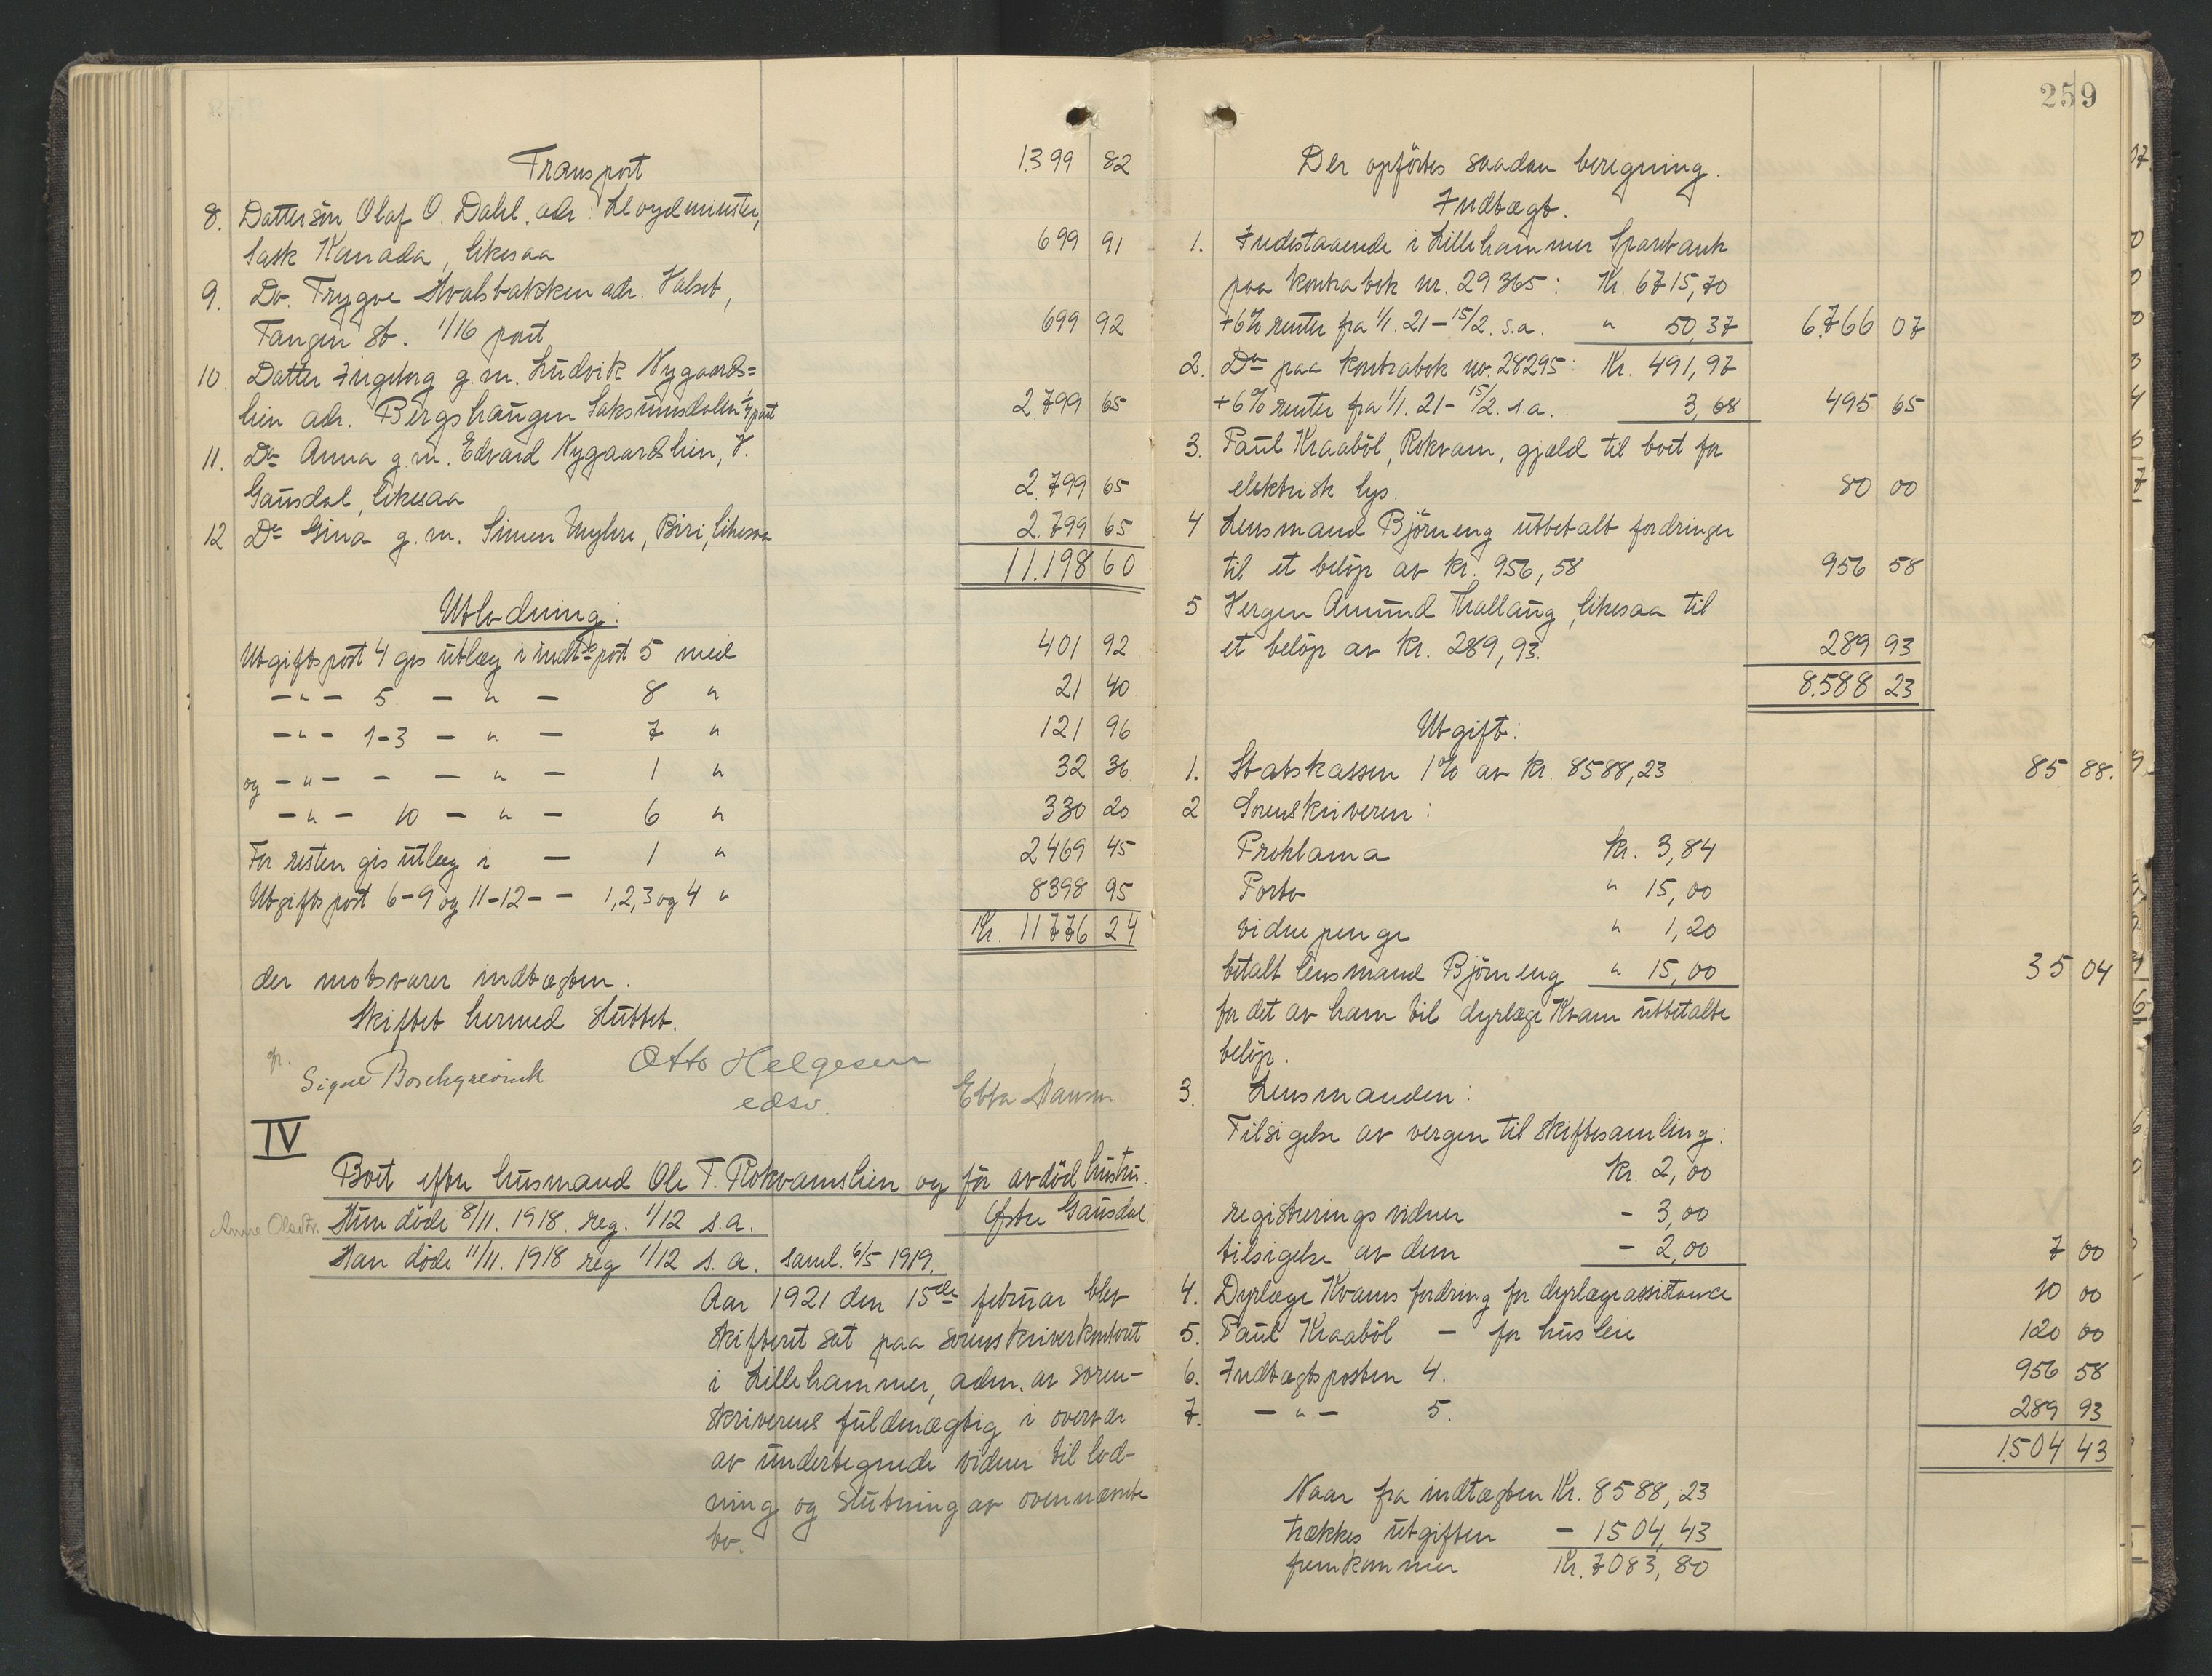 Transport 1.399 82
8. Dattersön Olaf O. Dahl, adr: Lloydminster,
Sask Kanada, likesaa 699 91
9. Do. Trygve Hvalsbakken adr. Valset,
Tangen st. 1/16 part 699 92
10. Datter Ingeborg g.m. Ludvik Nygaards=
lien adr. Bergshaugen Saksumsdalen 1/4 part 2.799 65
11. Do Anna g.m. Edvard Nygaardslien, V.
Gausdal, likesaa 2.799 65
12 Do Gina g.m. Simen Myhre, Biri, likesaa 2.799 65
11.198 60
Utlodning:
Utgiftspost 4 gis utlæg i indt.post 5 med 401 92
-"- 5 - " - 8 " 21 40
-"- 1-3 - " - 7 " 121 96
og -"- - - " - 1 " 32 36
-"- 10 - " - 6 " 330 20
For resten gis utlæg i - 1 " 2469 45
Utgiftspost 6-9 og 11-12 - - 1,2,3 og 4 " 8398 95
Kr. 11776 24
der motsvarer indtægten.
Skiftet hermed sluttet.
Otto Helgesen
edsv.
Signe Borchgrevink
Ebba Hansen
IV
Boet efter husmand Ole T. Rokvamslien og før avdöd hustru.
Anne Olsdtr. Hun döde 8/11. 1918. reg. 1/12 s.a. Østre Gausdal.
Han döde 11/11. 1918 reg 1/12 s.a. saml. 6/5. 1919.
Aar 1921 den 15de februar blev
skifteret sat paa sorenskriverkontoret
i Lillehammer, adm. av soren-
skriverens fuldmægtig i overvær
av undertegnede vidner til lod-
ning og slutning av ovennævnte
bo.
259
Der opförtes saadan beregning.
Indtægt.
1. Indestaaende i Lillehammer Sparebank
paa kontrabok nr. 29365: Kr. 6715,70
+6% renter fra 1/1. 21-15/2. s.a. " 50,37 6.766 07
2. Do paa kontrabok nr. 28295: Kr. 491,97
+6% renter fra 1/1. 21-15/2. s.a. 3,68 495 65
3. Paul Kraaböl, Rokvam, gjæld til boet for
elektrisk lys. 80 00
4 Lensmand Björneng utbetalt fordringer
til et belöp av kr. 956,58 956 58
5 Vergen Amund Thallaug, likesaa til
et belöp av kr. 289,93. 289 93
8.588 23
Utgift:
1. Statskassen 1% av kr. 8588,23 85 88.
2 Sorenskriveren:
Proklama kr. 3,84
Porto " 15,00
vidnepenge " 1,20
betalt lensmand Björneng " 15,00 35 04
for det av ham til dyrlæge Kvam utbetalte
belöp.
3. Lensmanden:
Tilsigelse av vergen til skiftesamling:
kr. 2,00
registreringsvidner - 3,00
tilsigelse av dem - 2,00 7 00
4. Dyrlæge Kvams fordring for dyrlægeassistance 10 00
5. Paul Kraaböl - for husleie 120 00
6. Indtægtsposten 4. 956 58
7. -"- 5. 289 93
1.504 43
Naar fra indtægten Kr. 8588,23
trækkes utgiften - 1504,43
fremkommer Kr. 7083,80